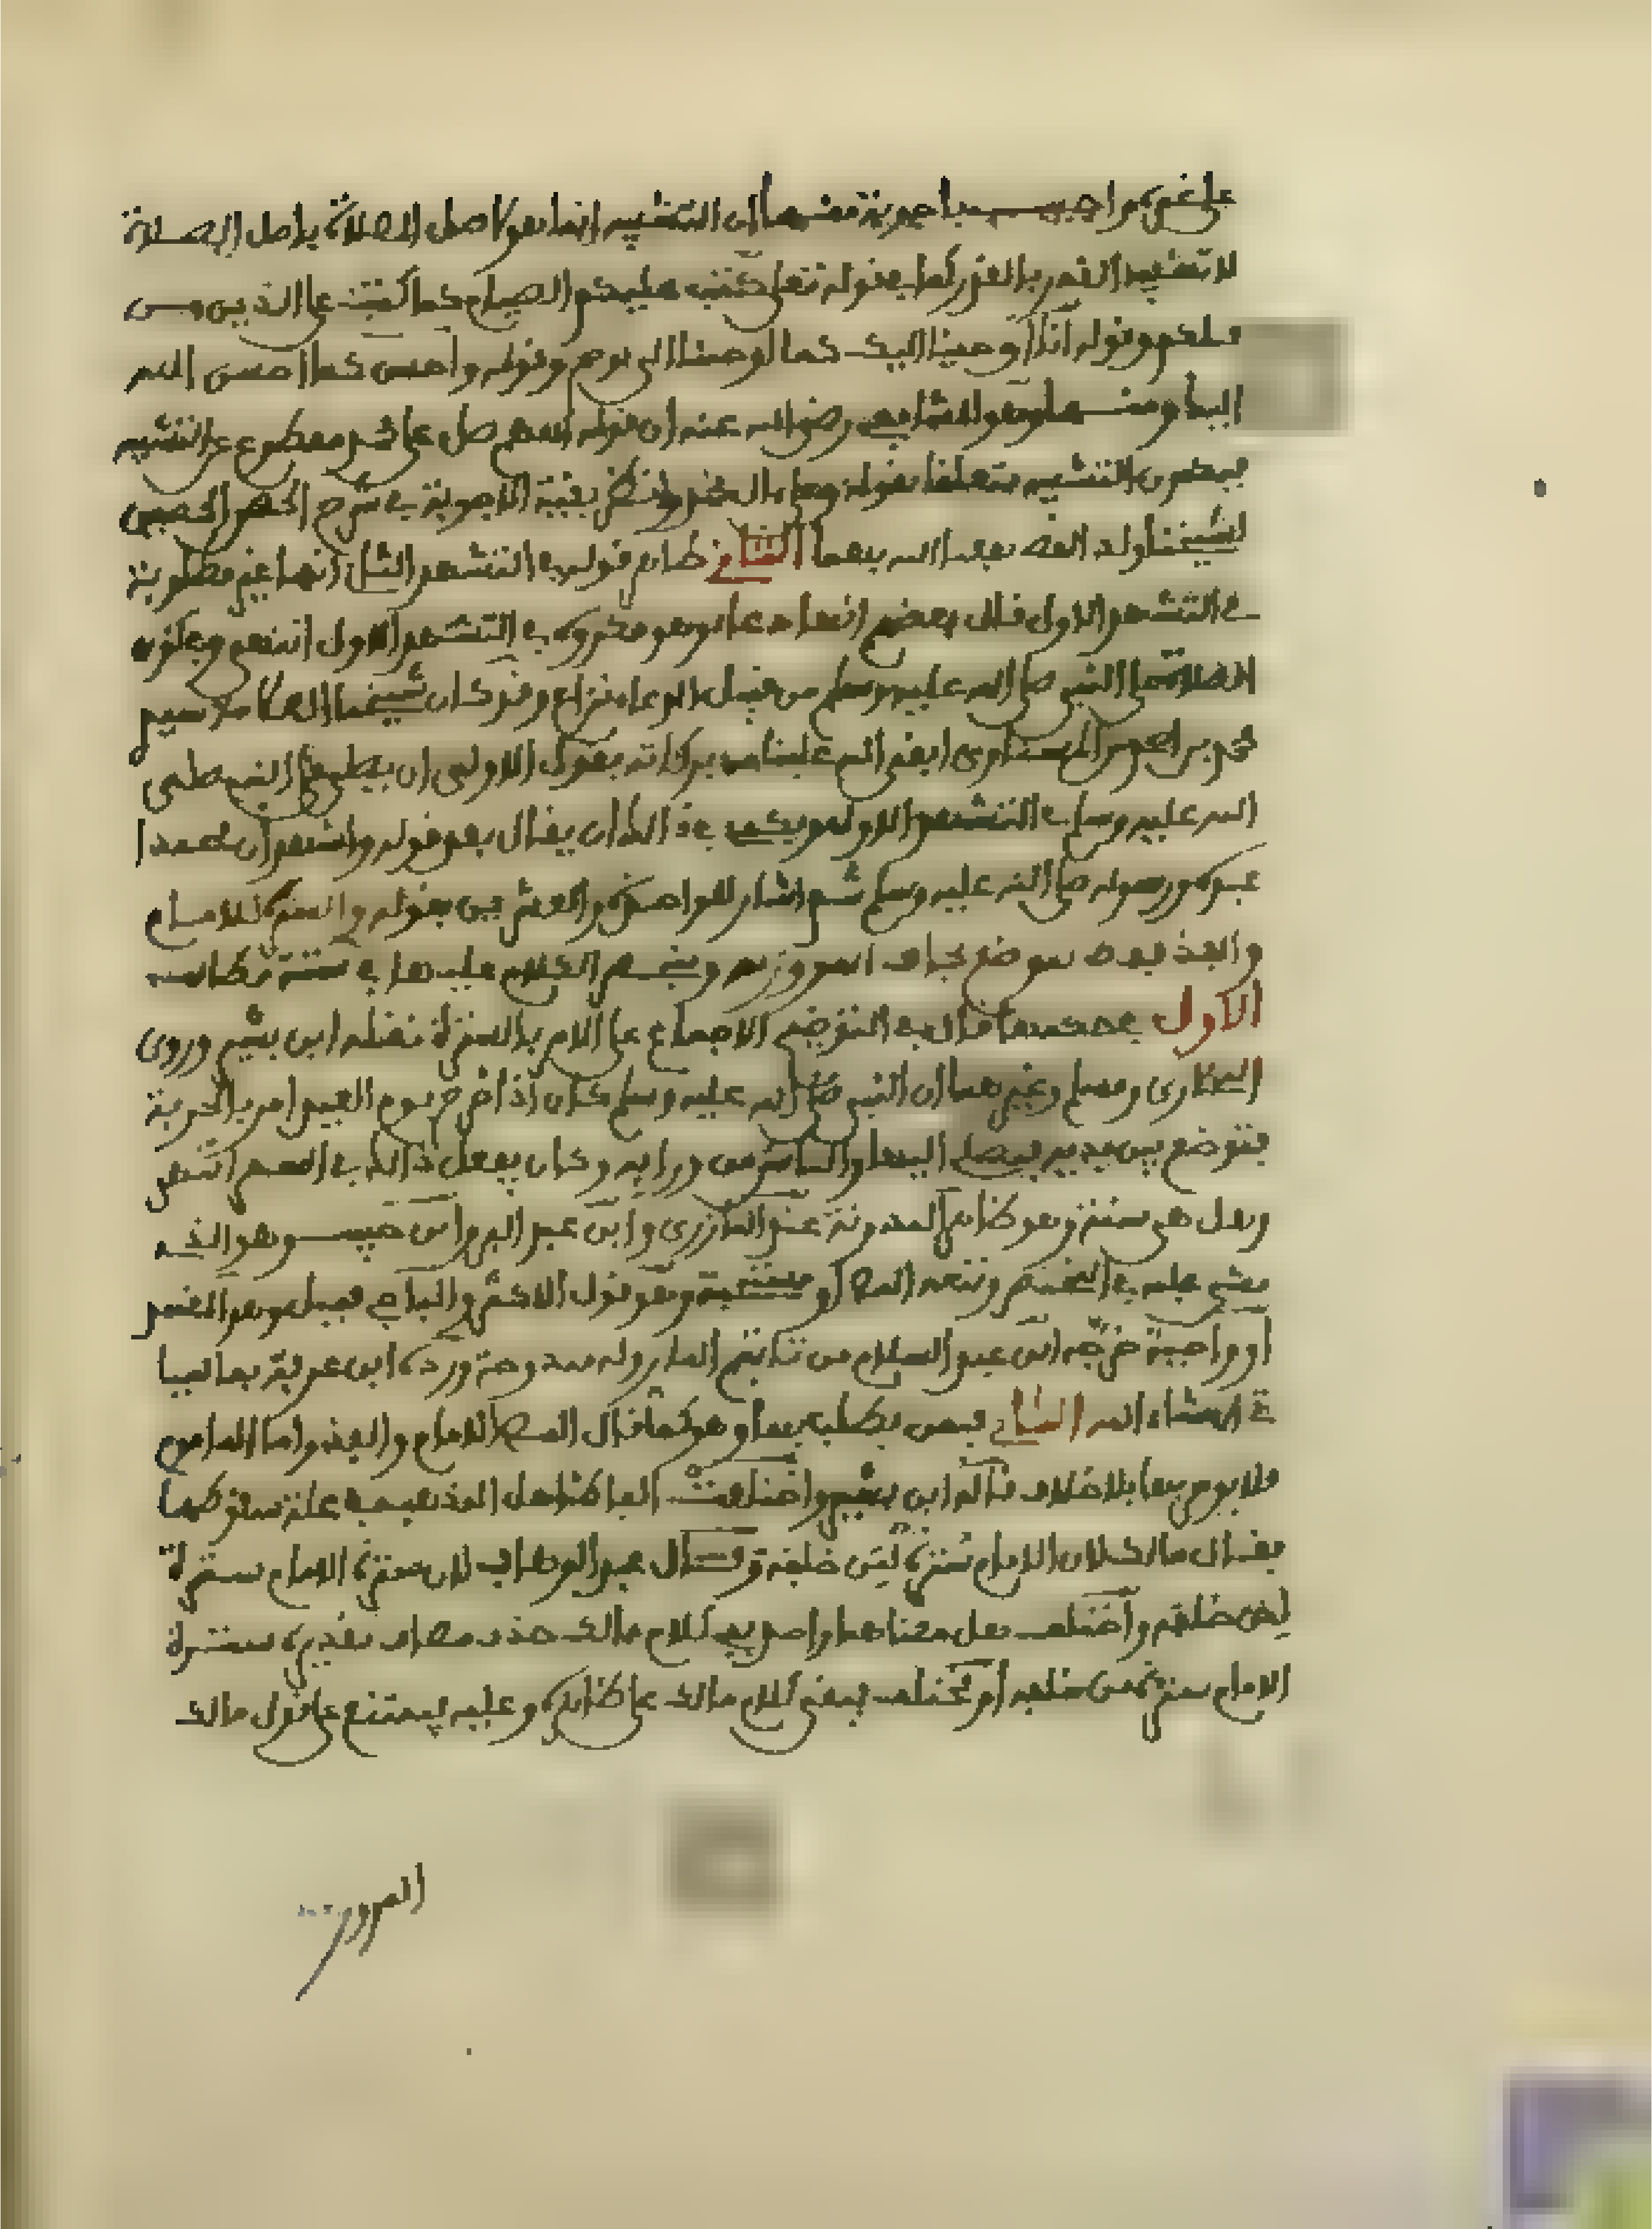 على غيره واجيب باجوبة منها ان التشبيه انما هو لاصل الصلاة باصل الصلاة
لا تشبيه القدر بالقدر كما في قوله تعلى كتب عليكم الصيام كما كتب على الذين من
قبلكم وقوله انا أوحينا اليك كما اوحينا الى نوح وقوله واحسن كما احسن الله
اليك ومنها وهو للشافعي رضي الله عنه ان قوله اللهم صل على محمد مقطوع عن التشبيه
فيكون التشبيه متعلقا بقوله وعلى ال محمد وانظر بقية الاجوبة في شرح الحصن الحصين
لشيخنا ولد الفقيه الله الثاني ظاهر قوله في التشهد الثاني انها غير مطلوبة
في التشهد الاول قال بعضهم الدعاء وهو مكروه في التشهد الاول انتهى وفي كون
الصلاة على النبي صلى الله عليه وسلم من قبيل الدعاء نزاع وقد كان شيخنا العلامة سيدي
محمد بن المسناوي ابقى الله علينا من بركاته يقول الاولى ان يصلى على النبي صلى
الله عليه وسلم في التشهد الاول ويكفي في ذالك ان يقال بعد قوله واشهد ان محمدا
عبده ورسوله صلى الله عليه وسلم ثم اشار للواحدة والعشرين بقوله والسترة للامام
والفذ بموضع يخاف المرور به وينحصر الكلام عليها في ستة مطالب
الاول في حكمها قال في التوضيح الاجماع على الامر بالسترة نقله ابن بشير وروى
البخاري ومسلم وغيرهما ان النبي صلى الله عليه وسلم كان اذا خرج يوم العيد امر بالحربة
فتوضع بين يديه فيصلي اليها والناس من ورائه وكان يفعل ذالك في السفر انتهى
وهل هي سنة وهو ظاهر المدونة عند المازري وابن عبد البر وابن حبيب وهو الذي
مشى عليه في المختصر وتبعه الناظم أو مستحبة وهو قول الاكثر والباجي قبيل وهو الظاهر
أو واجبة خرجه ابن عبد السلام من تاثيم المار وله مندوحة ورده ابن عرفة بما ليا
تي ان شاء الله الثاني فيمن يطلب بها وهو كما قال الناظم الامام والفذ واما الماموم
فلا يومر بها بلا خلاف قاله ابن بشير واختلفت الفاظ اهل المذهب في علة سقوطها
فقال مالك لان الامام سترة لمن خلفه وقال عبد الوهاب لان سترة الامام سترة
لمن خلفه واختلف هل معناهما واحد وفي كلام مالك حذف مضاف تقديره سترة
الامام سترة لمن خلفه أو مختلف فيبقى كلام مالك على ظاهره وعليه فيمتنع على قول مالك
المرور